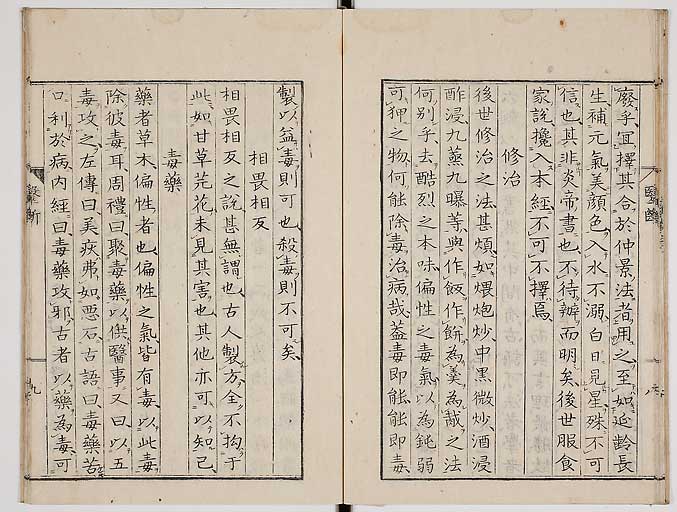 廢乎宜擇其合於仲景法者用之至如延齡長
生補元氣美顏色入水不溺白日見星殊不可
信也其非炎帝書也不待辨而明矣後世服食
家說攙入本經不可不擇焉
修治
後世修治之法甚煩如煨炮炒中黑微炒酒浸
酢浸九蒸九曝等與作飯作餅為羹為胾之法
何別乎去酷烈之本味偏性之毒氣以為鈍弱
可狎之物何能除毒治病哉蓋毒即能能即毒
製以益毒則可也殺毒則不可矣
相畏相反
相畏相反之說甚無謂也古人製方全不拘于
此如甘草芫花未見其害也其他亦可以知已
毒藥
藥者草木偏性者也偏性之氣皆有毒以此毒
除彼毒耳周禮曰聚毒藥以供醫事又曰以五
毒攻之左傳曰美疢弗如惡石古語曰毒藥苦
口利於病內經曰毒藥攻邪古者以藥為毒可
醫斷
九